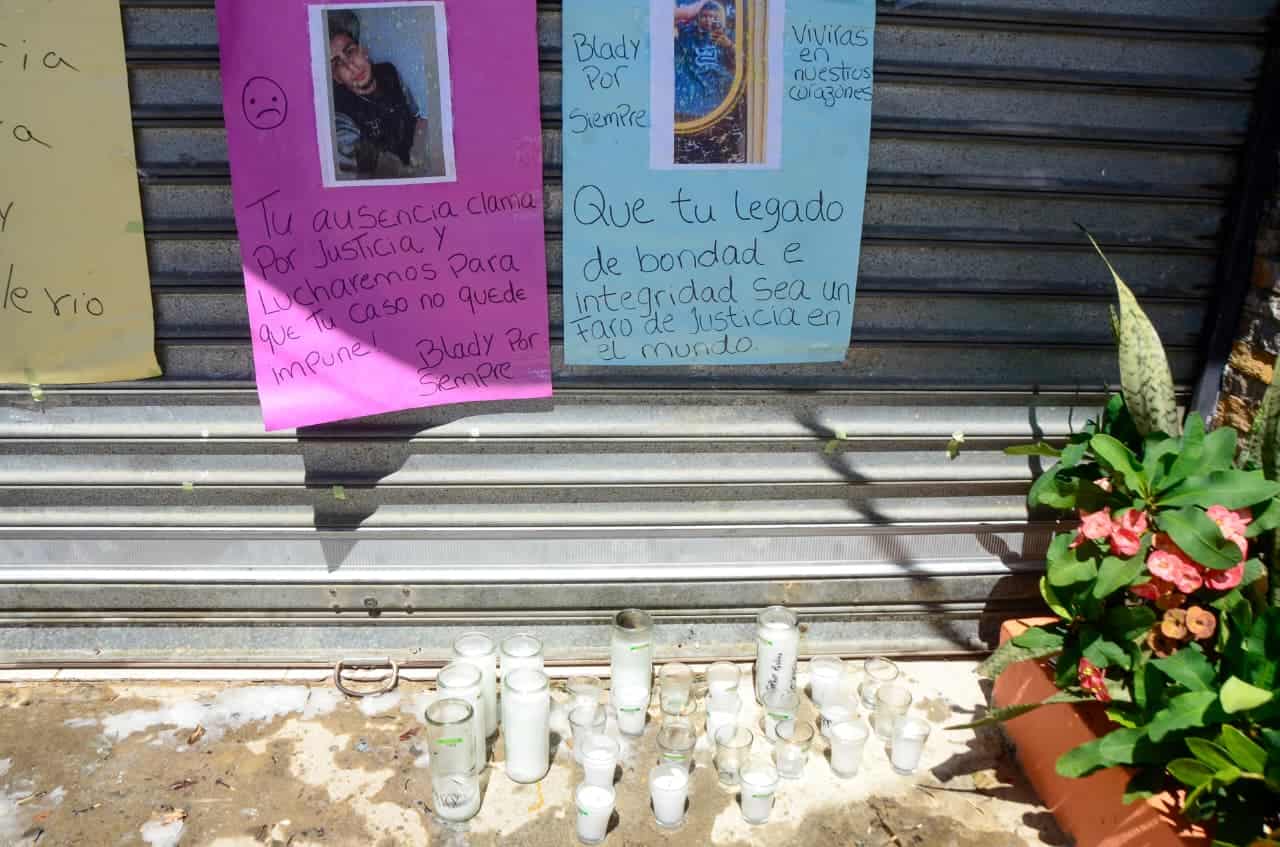 cia
ra
y
le rio
Tu ausencia clama
Por Justicia y
Lucharemos Para
que Tu caso no quede
impune!
Blady Por
Siempre
Blady
Por
Siempre
Viviras
en
nuestros
corazones
Que tu legado
de bondad e
integridad sea un
Faro de Justicia en
el mundo.